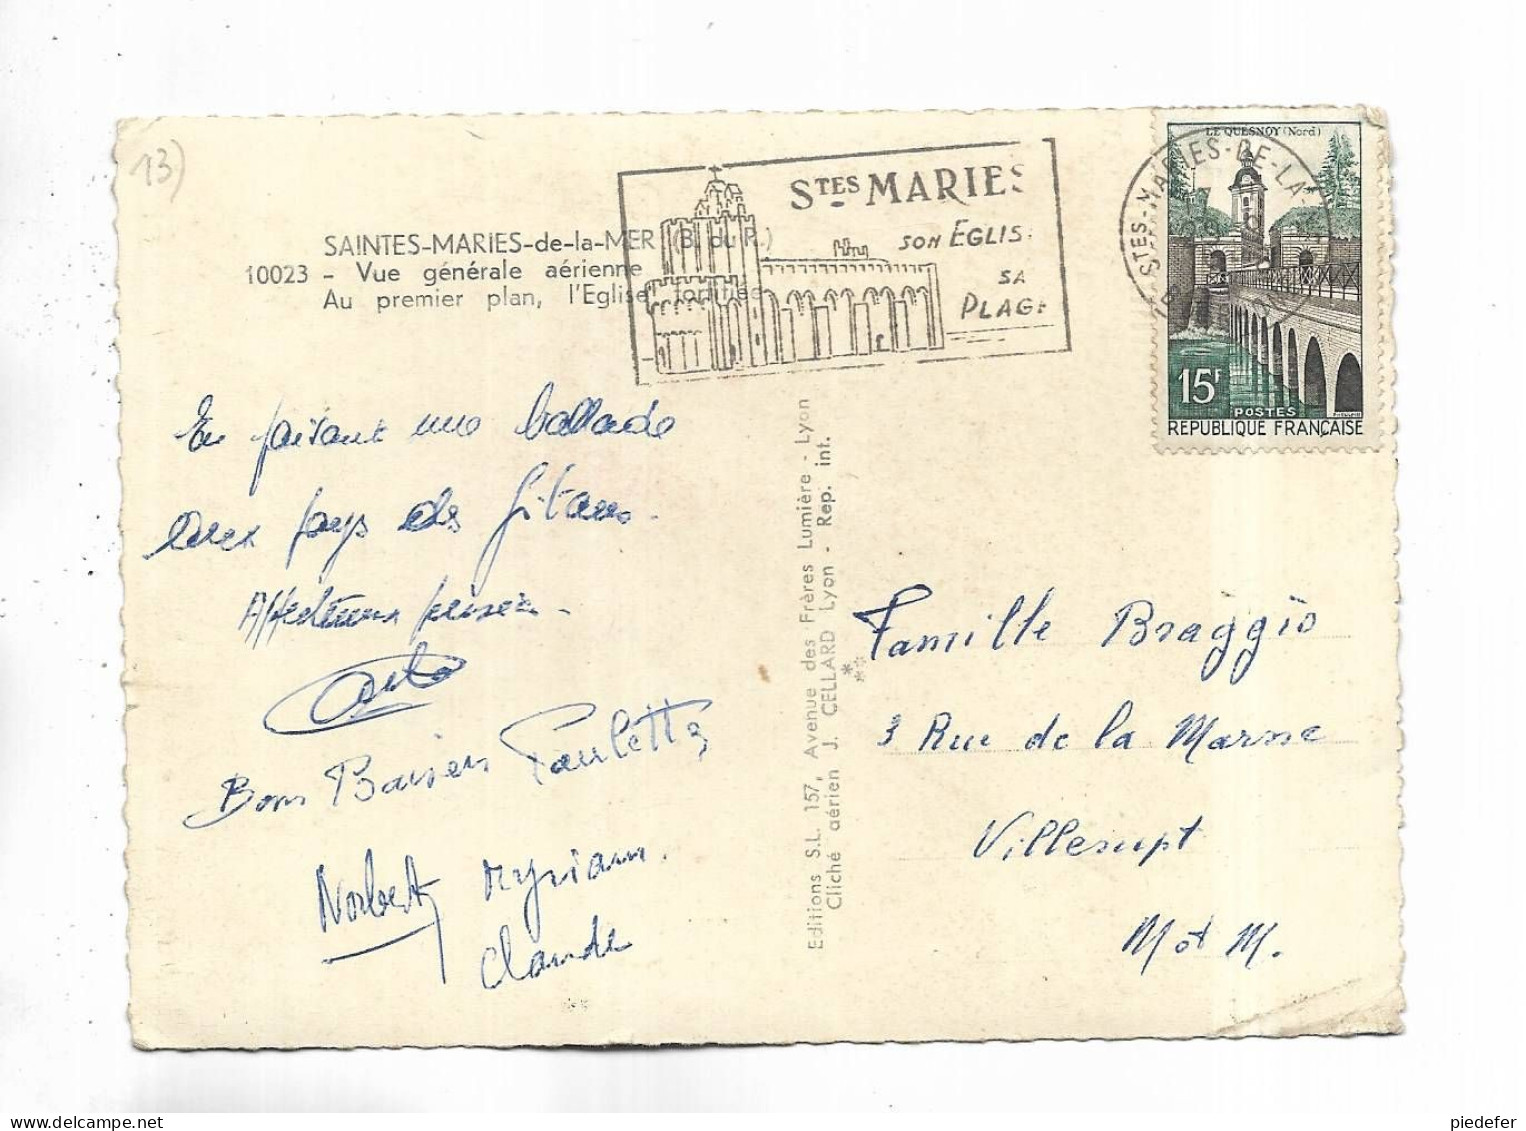 13)
SAINTES-MARIES-de-la-MER (B. du R.)
10023 - Vue générale aérienne
Au premier plan, l'Eglise fortifiée
STES MARIES
SON EGLIS
SA
PLAGE
STES-MARIES-DE-LA
LE QUESNOY (Nord)
15F
POSTES
REPUBLIQUE FRANÇAISE
En faisant une ballade
aux pays des Gitans.
Affectueuses pensées.
Bons Baisers Pauletta
Norbert Myriam.
Claude
Editions S.L. 157, Avenue des Frères Lumière - Lyon
Cliché aérien J. CELLARD Lyon - Rep. int.
Famille Braggio
3 Rue de la Marne
Villerupt
M et M.
piedefer